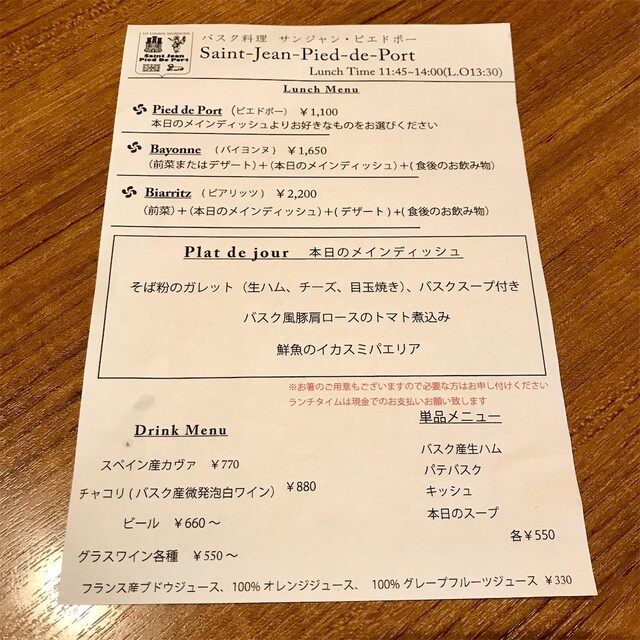 バスク料理 サンジャン・ピエドポー
Saint Jean
Pied De Port
Saint-Jean-Pied-de-Port
Lunch Time 11:45~14:00(L.O13:30)
Lunch Menu
Pied de Port (ピエドポー) ¥1,100
本日のメインディッシュよりお好きなものをお選びください
Bayonne (バイヨンヌ) ¥1,650
(前菜またはデザート)+(本日のメインディッシュ)+(食後のお飲み物)
Biarritz (ビアリッツ) ¥2,200
(前菜)+(本日のメインディッシュ)+(デザート)+(食後のお飲み物)
Plat de jour 本日のメインディッシュ
そば粉のガレット(生ハム、チーズ、目玉焼き)、バスクスープ付き
バスク風豚肩ロースのトマト煮込み
鮮魚のイカスミパエリア
※お箸のご用意もございますので必要な方はお申し付けください
ランチタイムは現金でのお支払いお願い致します
Drink Menu
スペイン産カヴァ ¥770
チャコリ(バスク産微発泡白ワイン) ¥880
ビール ¥660~
グラスワイン各種 ¥550~
単品メニュー
バスク産生ハム
パテバスク
キッシュ
本日のスープ
各¥550
フランス産ブドウジュース、100%オレンジジュース、100%グレープフルーツジュース ¥330